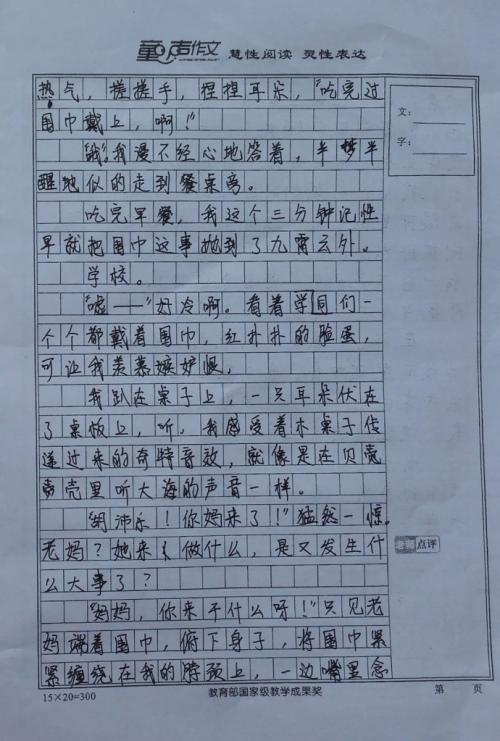 童声作文 慧性阅读 灵性表达
热气，搓搓手，捏捏耳朵，“吃完过
围巾戴上，啊！”
“哦。”我漫不经心地答着，半梦半
醒地似的走到餐桌旁。
吃完早餐，我这个三分钟记性
早就把围巾这事抛到了九霄云外。
学校。
“嘘——”好冷啊。看着学同们一
个个都戴着围巾，红扑扑的脸蛋，
可让我羡慕嫉妒恨，
我趴在桌子上，一只耳朵伏在
了桌板上，听，我感受着木桌子传
递过来的奇特音效，就像是在贝壳
壳里听大海的声音一样。
沛乐！你妈来了！”猛然一惊。
老妈？她来做什么，是又发生什
么大事了？
“妈妈，你来干什么呀！”只见老
妈端着围巾，俯下身子，将围巾紧
紧缠绕在我的脖颈上，一边嘴里念
文：
字：
老师点评
15×20=300
教育部国家级教学成果奖
第 页